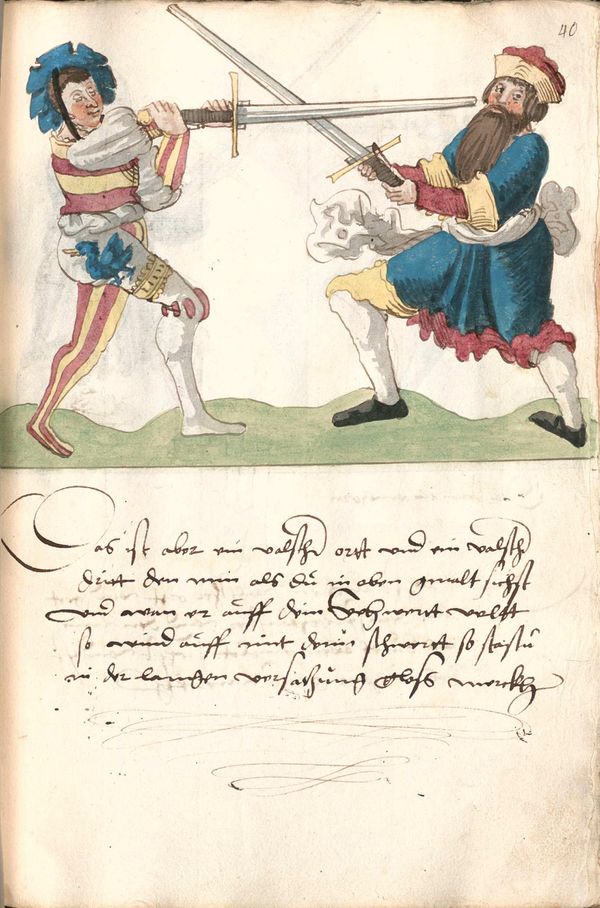 40
Das ist aber ein valsch ortt vnd ein valsch
dritt den nim als du in oben gmalt sichst
vnd wan er auff dein Schwertt velltt
so wind auff mit deim schwertt so stastu
in der langen versatzung gloss merckh